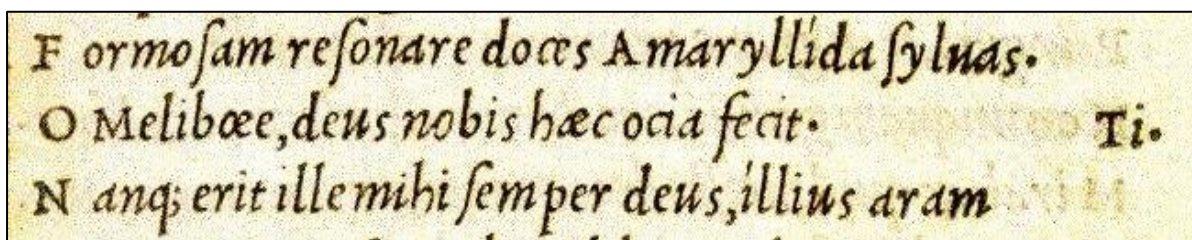 F ormoſam reſonare doces Amaryllida ſyluas.
O Melibœe, deus nobis hæc ocia fecit. Ti.
N anq; erit ille mihi ſemper deus, illius aram